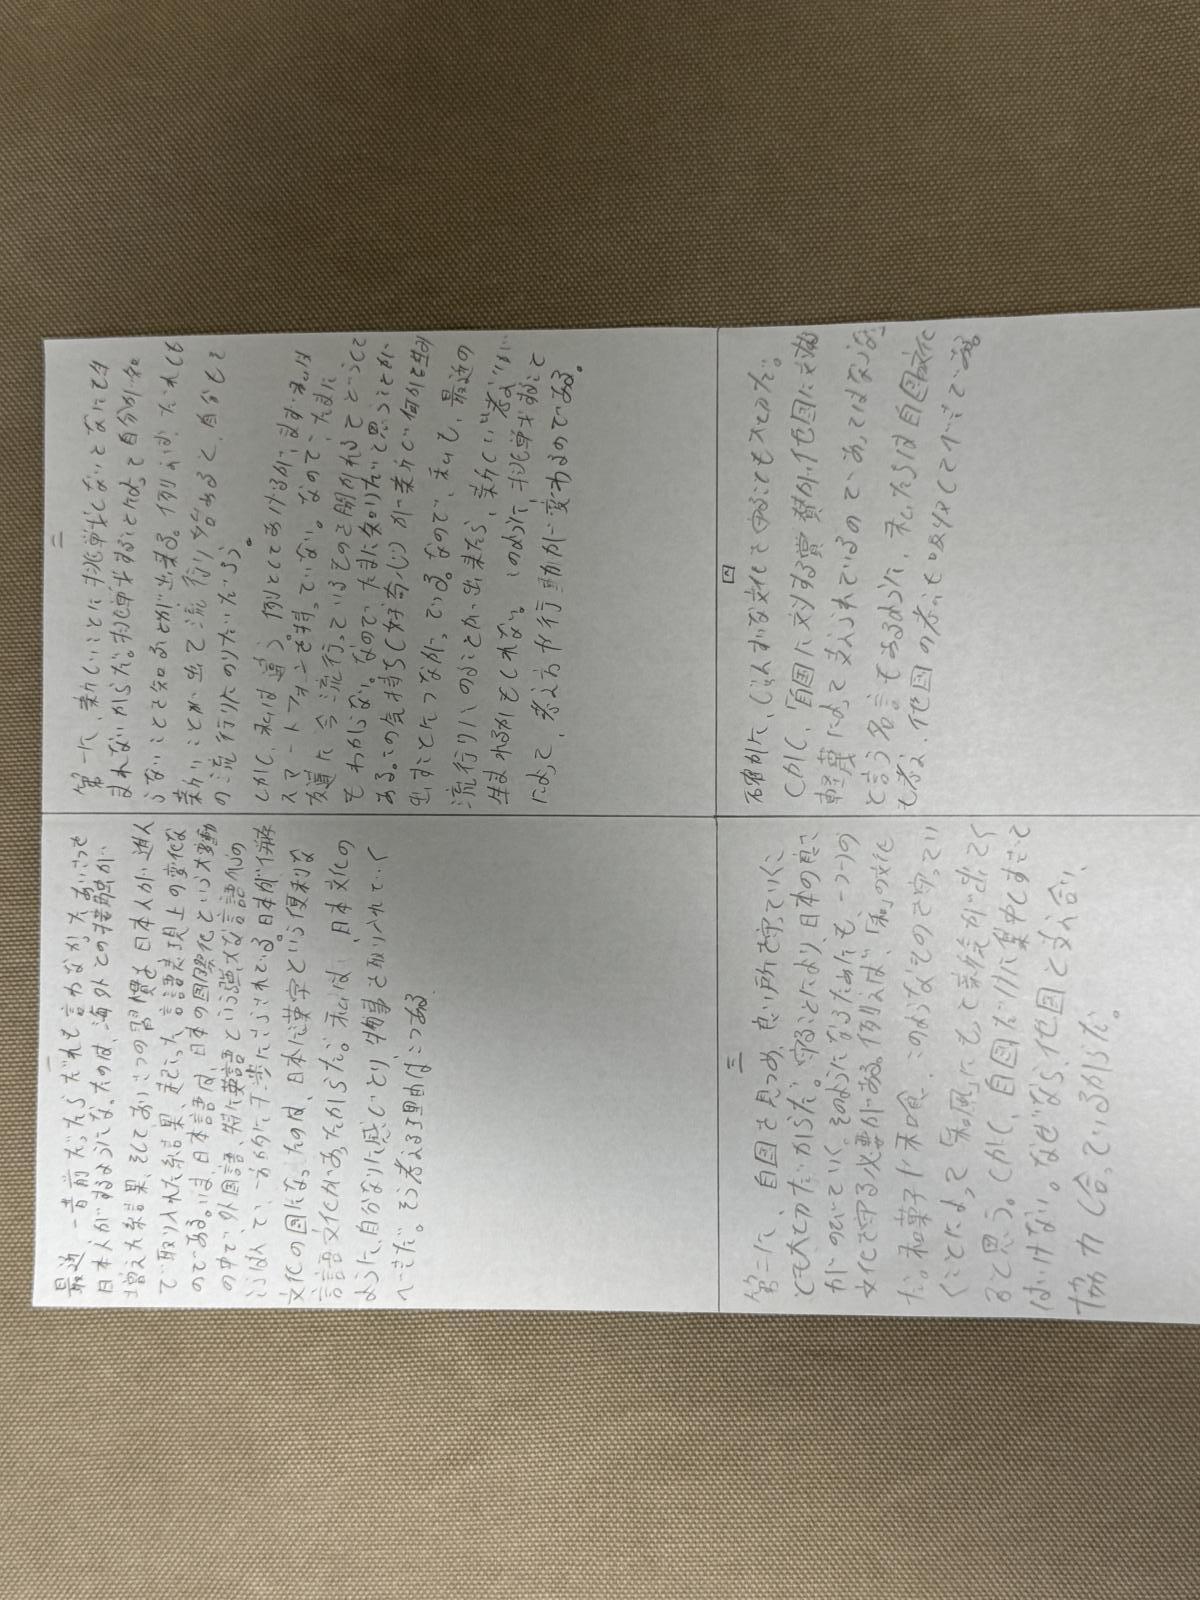 一
最近、一昔前だったらだれも言わなかったあいさつを
日本人がするようになったのは、海外との接触が
増えた結果、そしてあいさつの習慣を日本人が進ん
で取り入れた結果、起こった言語表現上の変化な
のである。いま、日本語は、日本の国際化という大変動
の中で、外国語、特に英語という強大な言語からの
文化の国になったのは、日本に漢字という便利な
言語文化があったからだ。私は、日本文化の
ように、自分なりに感じとり物事を取り入れていく
べきだ。そう考える理由は二つある。
二
第一に、新しいことに挑戦しないとなにも生
まれないからだ。挑戦することによって自分が知
らないことを知ることが出来る。例えば、だれでも
新しいことが出て流行り始めると、自分もそ
の流行りにのりたいだろう。
しかし、私は違う。例としてあげるが、まず、私は
スマートフォンを持っていない。なので、たまに
友達に今流行っているものを聞かれるといっても
もわからない。なので、たまに知りたいと思うことが
ある。この気持ち(好奇心)が新しい何かを生み
出すことにつながっている。なので、私も、最近の
流行りにのることが出来たら、新しい考えが
生まれるかもしれない。このように、挑戦すること
によって、考え方や行動が変わるのである。
三
第二に、自国を見つめ、良い所を守っていくこ
とも大切だからだ。守ることにより日本の良さ
がのびていく。そのようになるためにも、一つ一つの
文化を守る必要がある。例えば、「和」の文化
だ。和菓子や和食、このようなものを守ってい
くことによって「和風」にもっと新鮮が出てく
ると思う。しかし、自国だけに集中しすぎて
はいけない。なぜなら、他国と支え合い、
協力し合っているからだ。
四
確かに、じゅんすいな文化を守ることも大切だ。
しかし、「自国に対する賞賛が他国に対する
軽蔑によって支えられているのであってはならない」
と言う名言もあるように、私たちは自国文化
も考え、他国の考えも吸収していくべきである